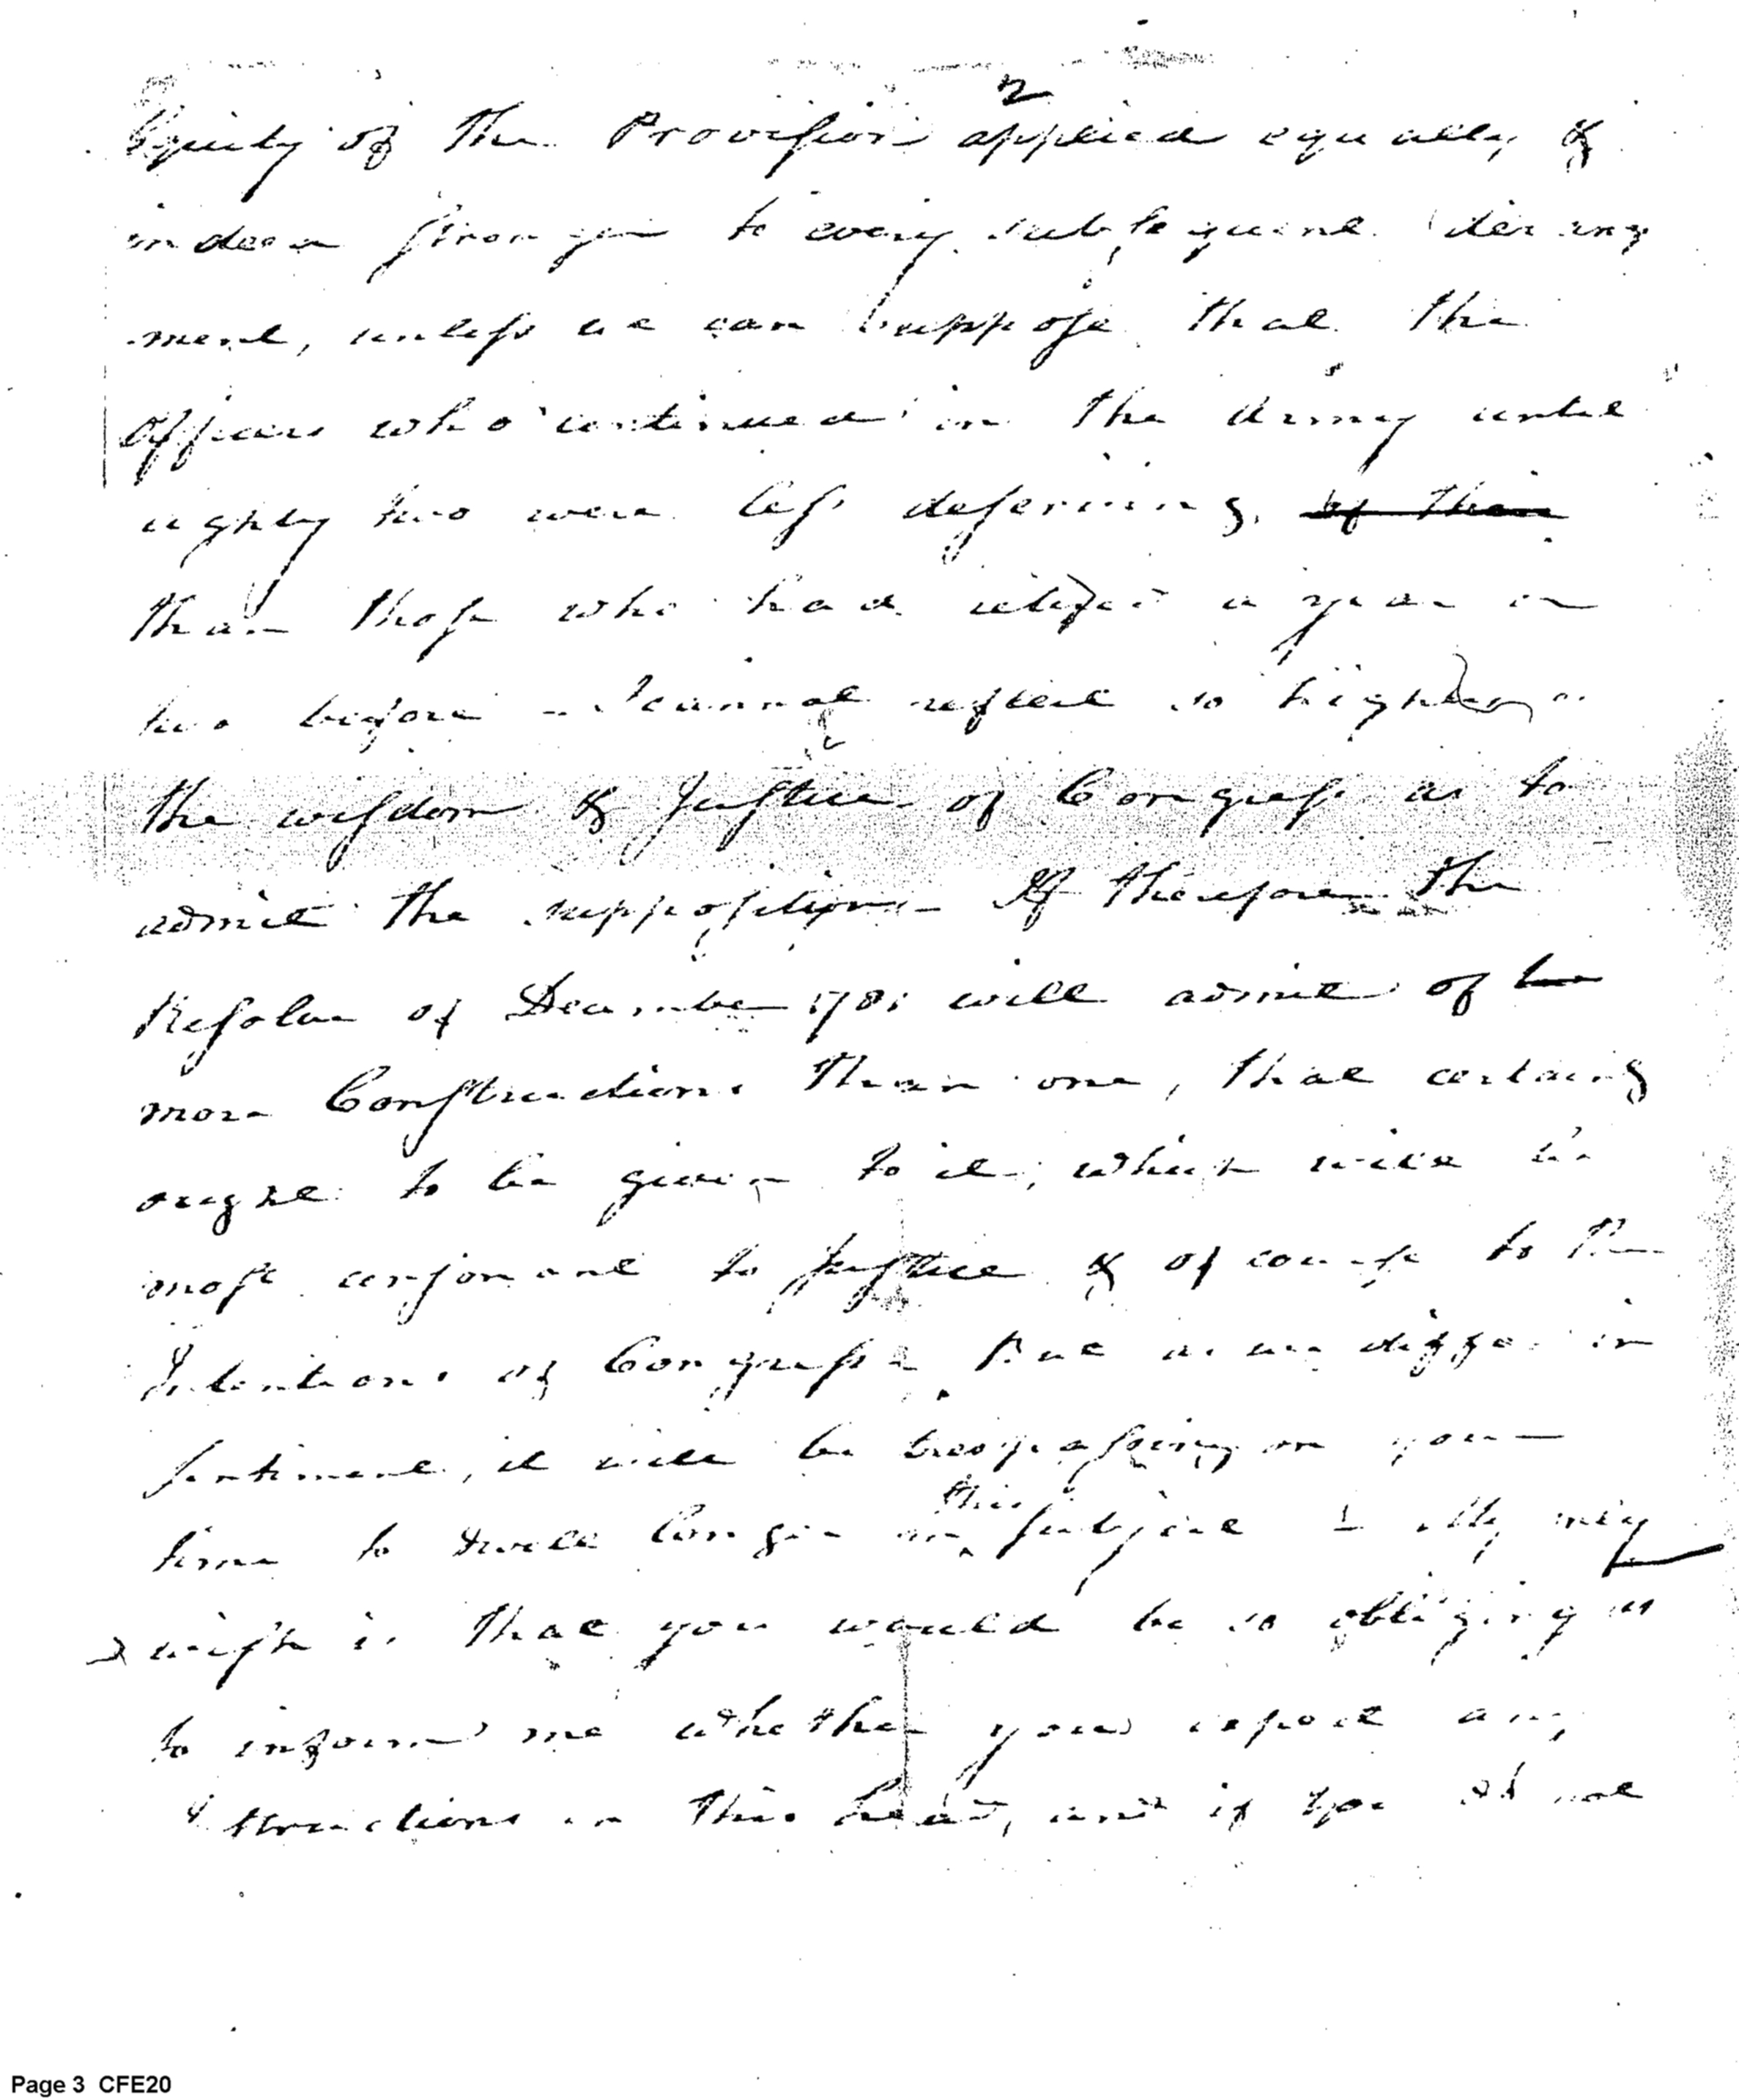 2
Equity of the Provision applied equally &
indeed stronger to every subsequent derang
ment, unless we can suppose that the
officers who continued in the Army until
eighty two were less deserving, of them
than those who had retired a year or
two before - I cannot reflect so highly on
the wisdom & Justice of Congress as to
admit the supposition - If therefore the
Resolve of December 1781 will admit of
more Constructions than one, that certainly
ought to be given to it, which will be
most consonant to Justice & of course to the
Intentions of Congress But as we differ in
sentiment, it will be trespassing on your
this
time to dwell longer on subject - My
wish is that you would be so obliging as
to inform me whether you expect any
structions on this head, and if you do not
Page 3 CFE20